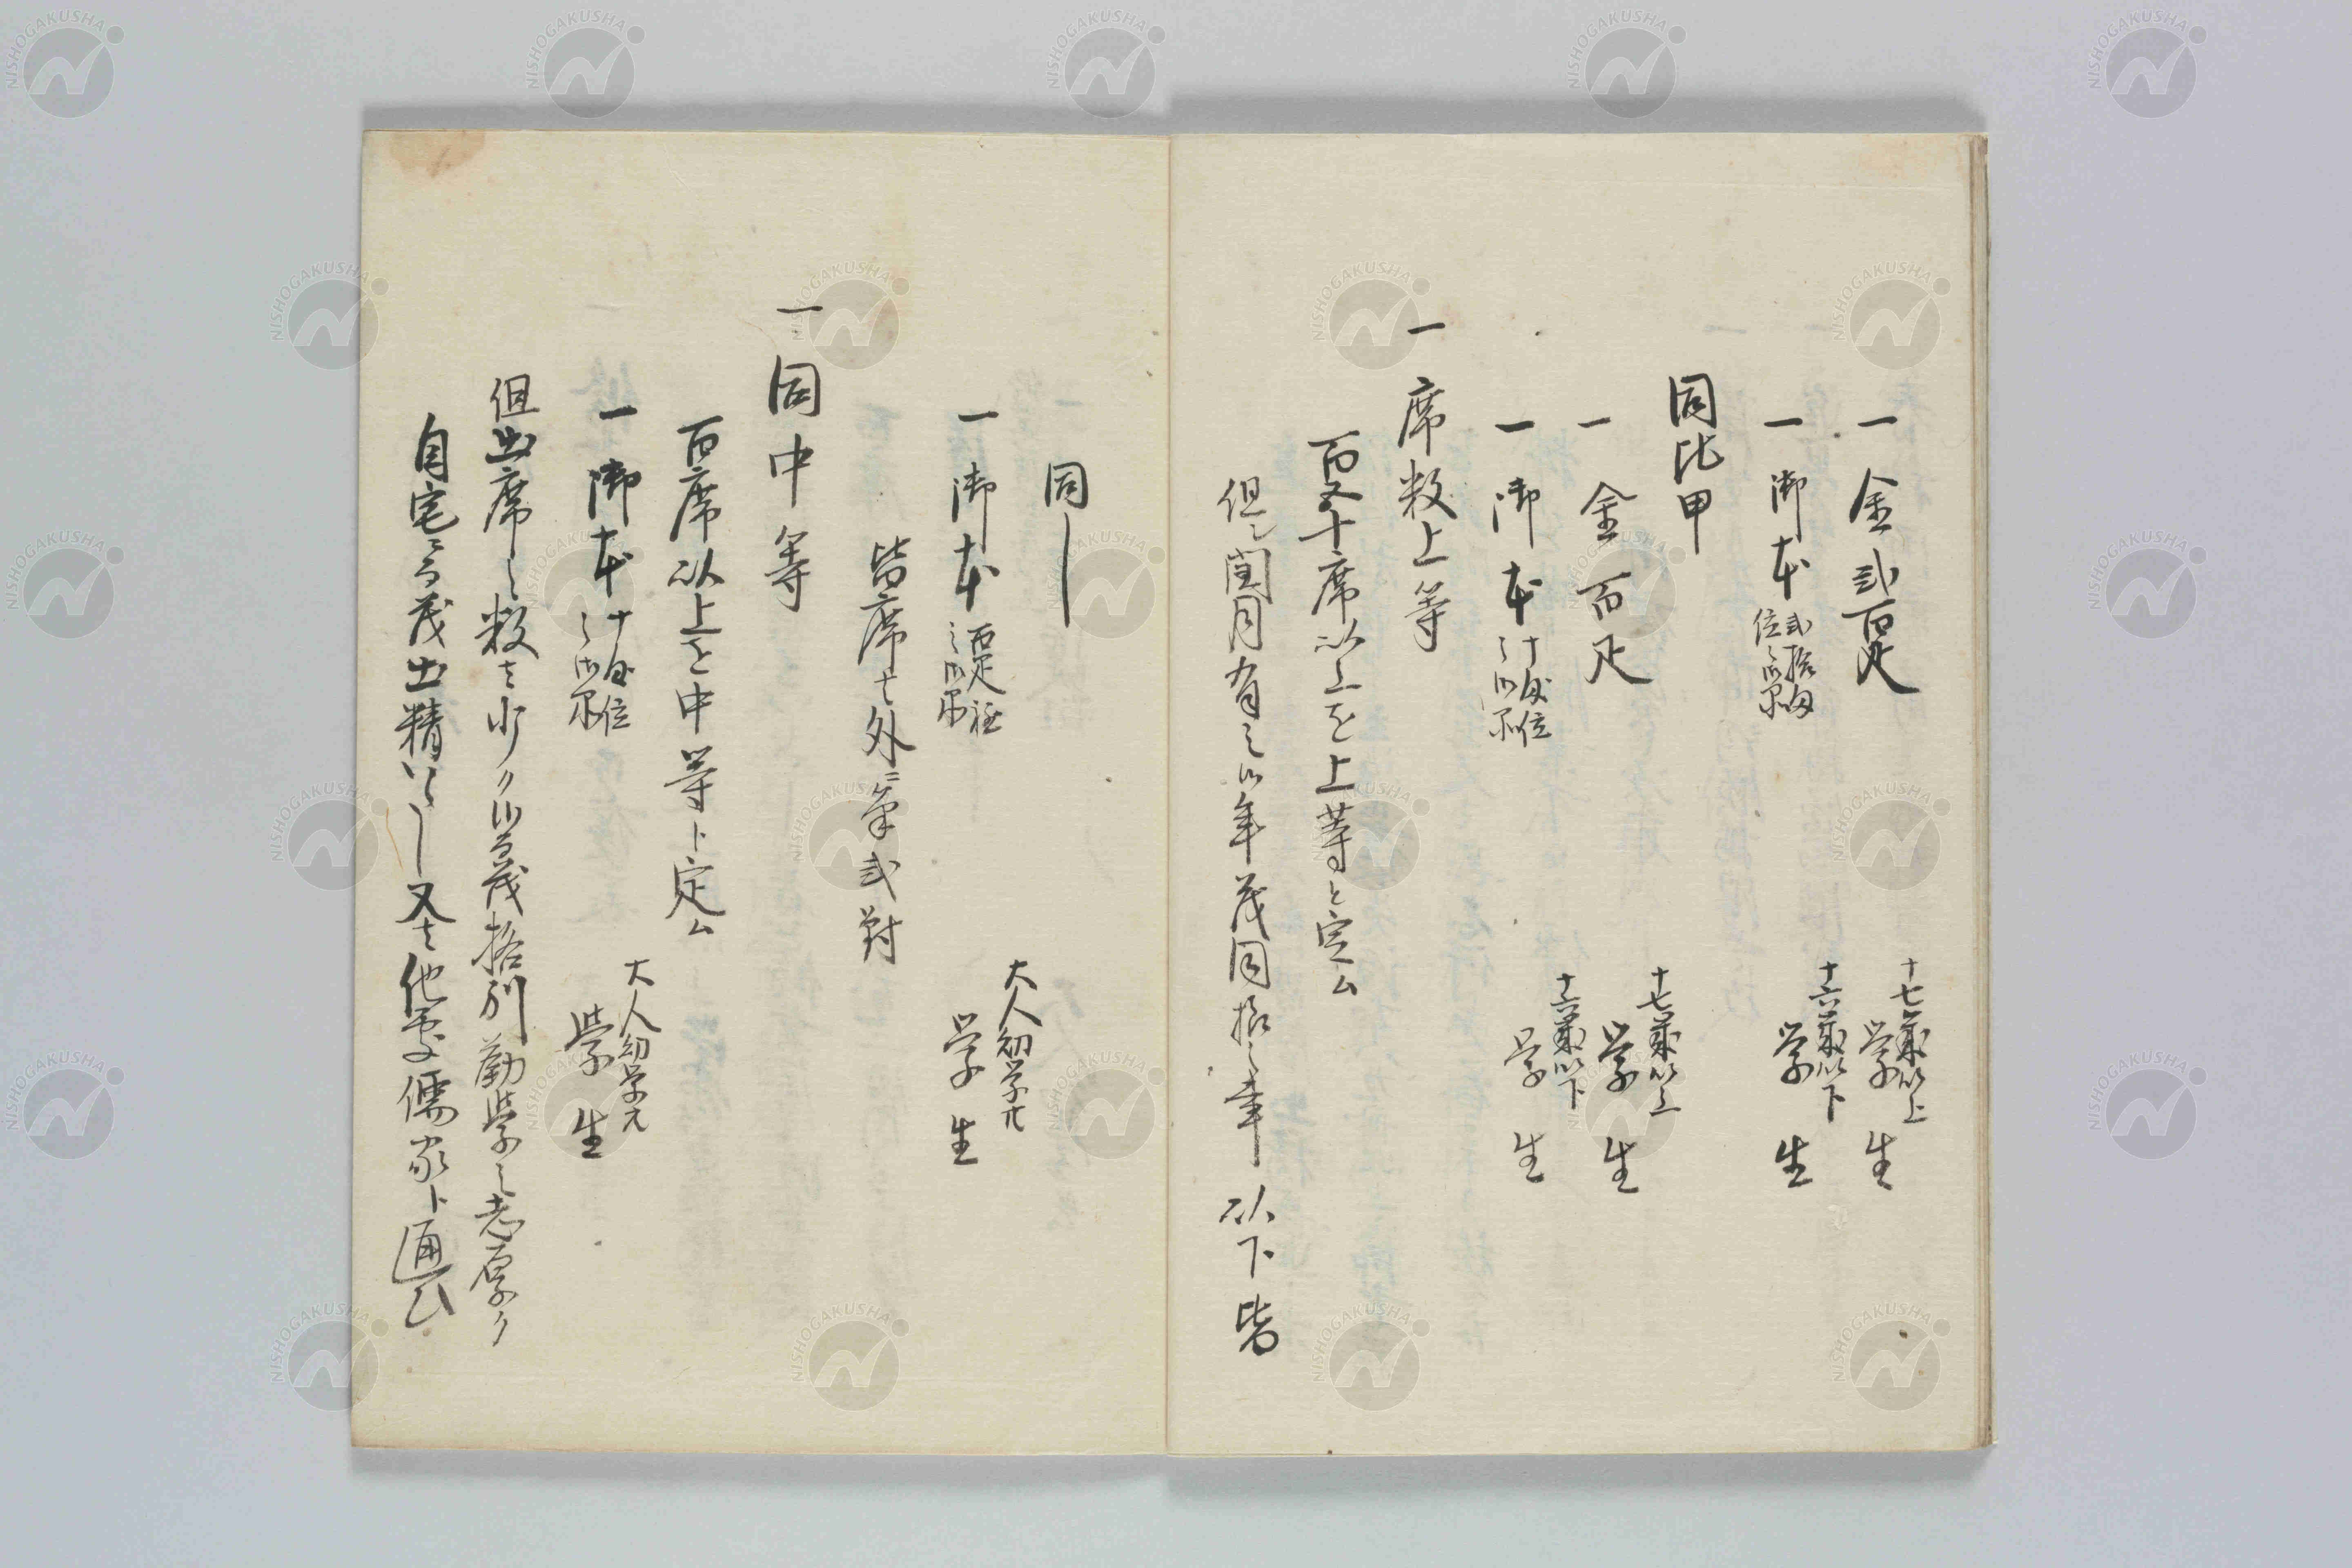 一金弐百疋　十七歳以上 学生
一御本 弐拾匁位之御品　十六歳以下 学生
同比甲
一金百疋　十七歳以上 学生
一御本 十匁位之御品　十六歳以下 学生
一席数上等
百五十席以上を上等と定ム
但シ閏月有之候年茂同様之事以下皆
同し
一御本 百疋位之御品　大人幼学共 学生
皆席ハ外ニ筆弐対
一同中等
百席以上を中等ト定ム
一御本 十匁位之御品　大人幼学共 学生
但出席之数ハ少ク候而茂格別勤学之志厚ク
自宅ニ而茂出精いたし又ハ他処儒家ト通ひ
NISHOGAKUSHA